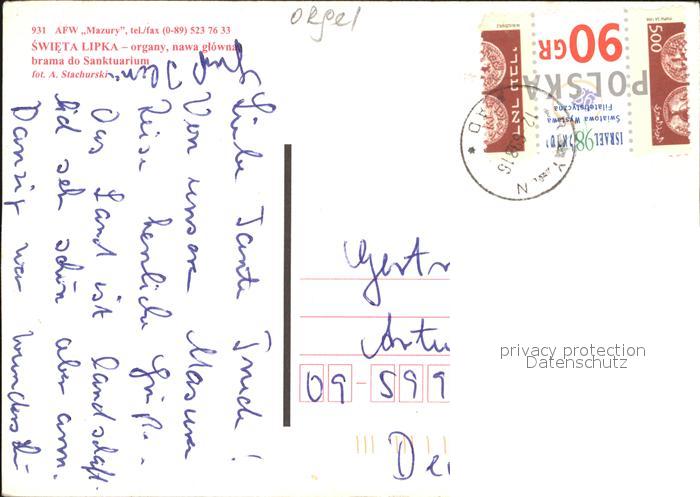 orgel
931 AFW „Mazury”, tel./fax (0-89) 523 76 33
ŚWIĘTA LIPKA – organy, nawa główna,
brama do Sanktuarium
fot. A. Stachurski
Liebe Tante Trude!
Von unserer Masuren
Reise herzliche Grüße.
Das Land ist landschaft-
lich sehr schön aber arm.
Danzig war wunderschön
Gertr
Artu
09-599
De
POLSKA
90GR
500
ISRAEL 98
Światowa Wystawa
Filatelistyczna
privacy protection
Datenschutz